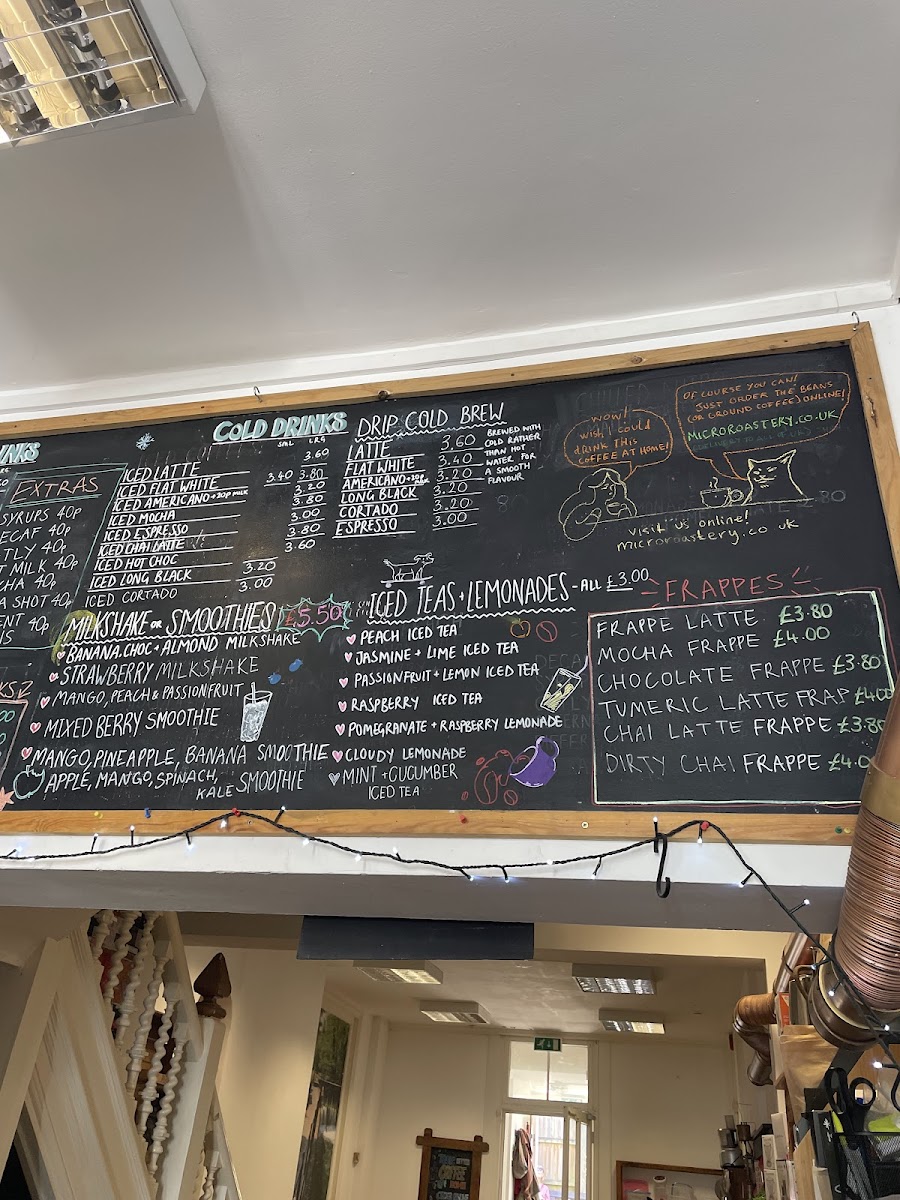 INKS
EXTRAS
SYRUPS 40p
ECAF 40p
TLY 40p
T MILK 40p
CHA 40p
A SHOT 40p
ENT 40p
NS
KS
COLD DRINKS
SML LRG
ICED LATTE 3.60
ICED FLAT WHITE 3.40 3.80
ICED AMERICANO + 20P MILK 3.20
ICED MOCHA 3.80
ICED ESPRESSO 3.00
ICED CHAI LATTE 3.80
ICED HOT CHOC 3.60
ICED LONG BLACK 3.20
ICED CORTADO 3.00
MILKSHAKE OR SMOOTHIES £5.50
BANANA, CHOC + ALMOND MILKSHAKE
STRAWBERRY MILKSHAKE
MANGO, PEACH & PASSIONFRUIT
MIXED BERRY SMOOTHIE
MANGO, PINEAPPLE, BANANA SMOOTHIE
APPLE, MANGO, SPINACH,
KALE SMOOTHIE
DRIP COLD BREW
LATTE 3.60
FLAT WHITE 3.40
AMERICANO + 3.20
LONG BLACK 3.20
CORTADO 3.20
ESPRESSO 3.00
BREWED WITH
COLD RATHER
THAN HOT
WATER FOR
A SMOOTH
FLAVOUR
ICED TEAS + LEMONADES - ALL £3.00
PEACH ICED TEA
JASMINE + LIME ICED TEA
PASSIONFRUIT + LEMON ICED TEA
RASPBERRY ICED TEA
POMEGRANATE + RASPBERRY LEMONADE
CLOUDY LEMONADE
MINT + CUCUMBER
ICED TEA
WOW!
I wish I could
drink THIS
COFFEE AT HOME!
OF COURSE YOU CAN!
JUST ORDER THE BEANS
(OR GROUND COFFEE) ONLINE!
MICROROASTERY.CO.UK
visit us online!
microroastery.co.uk
FRAPPES
FRAPPE LATTE £3.80
MOCHA FRAPPE £4.00
CHOCOLATE FRAPPE £3.80
TUMERIC LATTE FRAP £4.00
CHAI LATTE FRAPPE £3.80
DIRTY CHAI FRAPPE £4.0
COFFEE